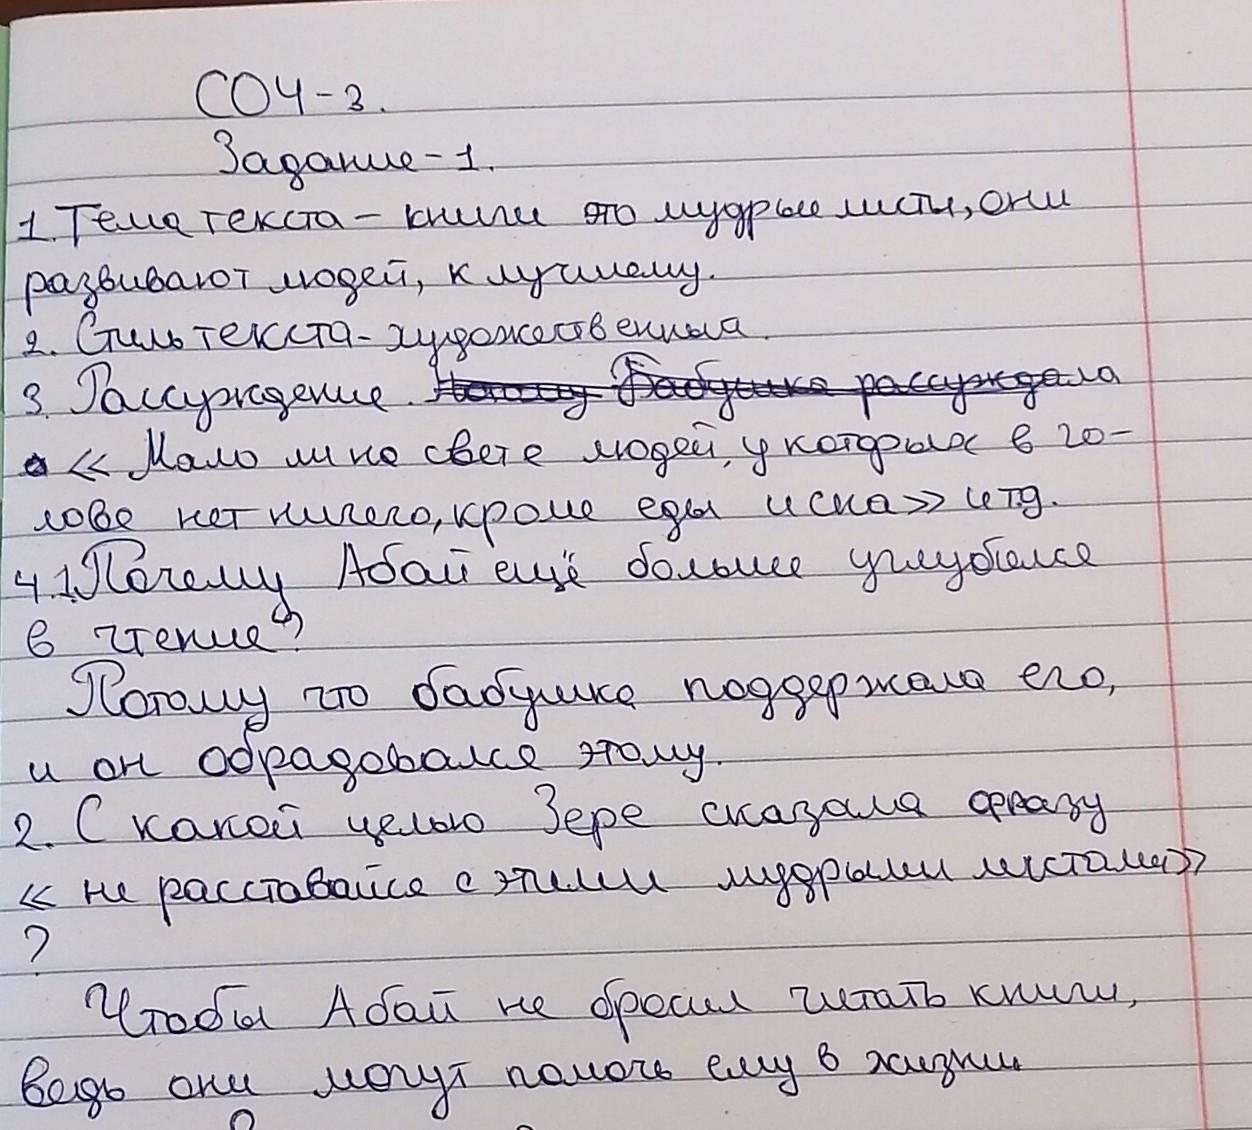 СОЧ-3.
Задание-1.
1. Тема текста - книги это мудрые листы, они
развивают людей, к лучшему.
2. Стиль текста - художественный.
3. Рассуждение. Потому Бабушка рассуждала
« Мало ли на свете людей, у которых в го-
лове нет ничего, кроме еды и сна» и тд.
4.1. Почему Абай ещё больше углубился
в чтение?
Потому что бабушка поддержала его,
и он обрадовался этому.
2. С какой целью Зере сказала фразу
« не расставайся с этими мудрыми листами»
?
Чтобы Абай не бросил читать книги,
ведь они могут помочь ему в жизни